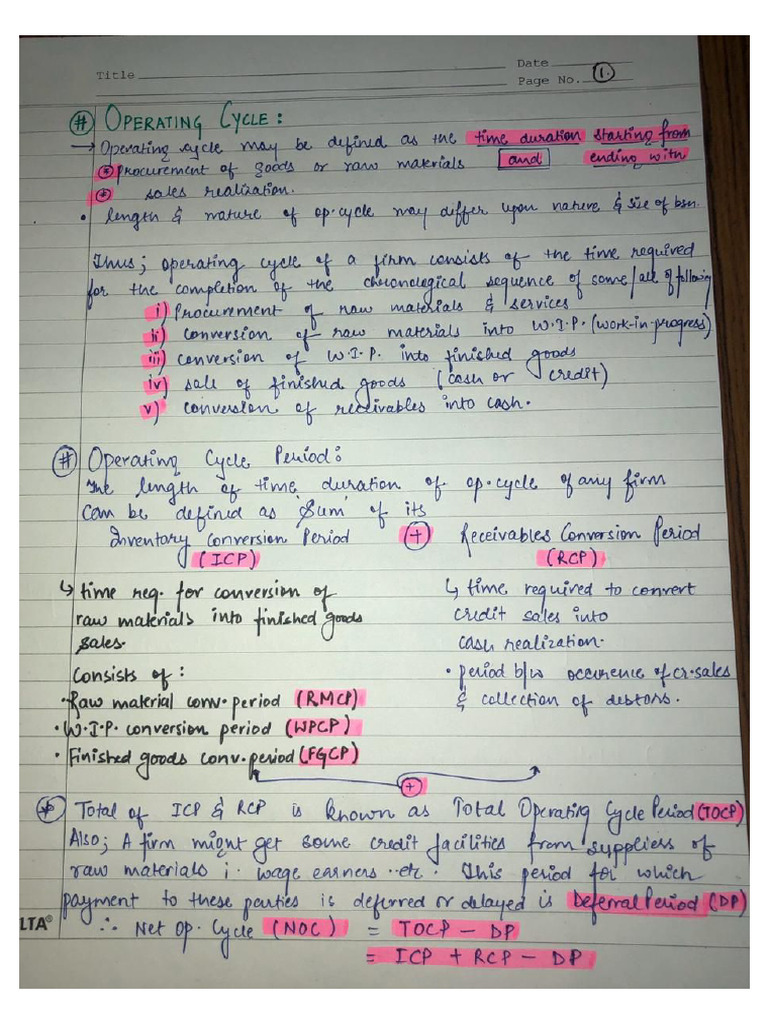 Title
Date
Page No. 1.
# OPERATING CYCLE:
→ Operating cycle may be defined as the time duration starting from
* procurement of goods or raw materials and ending with
* sales realization.
• length & nature of op. cycle may differ upon nature & size of bsn.
Thus; operating cycle of a firm consists of the time required
for the completion of the chronological sequence of some/all of following
i) Procurement of raw materials & services
ii) conversion of raw materials into W.I.P. (work-in-progress)
iii) conversion of W.I.P. into finished goods
iv) sale of finished goods (cash or credit)
v) conversion of receivables into cash.
# Operating Cycle Period:
The length of time duration of op. cycle of any firm
can be defined as 'Sum' of its
Inventory Conversion Period + Receivables Conversion Period
(ICP) (RCP)
↳ time req. for conversion of
raw materials into finished goods
sales.
Consists of:
• Raw material conv. period (RMCP)
• W.I.P. conversion period (WPCP)
• Finished goods conv. period (FGCP)
↳ time required to convert
credit sales into
cash realization.
• period b/w occurence of cr. sales
& collection of debtors.
+
* Total of ICP & RCP is known as Total Operatig Cycle Period (TOCP)
Also; A firm might get some credit facilities from suppliers of
raw materials ; wage earners etc. This period for which
payment to these parties is deferred or delayed is Deferral Period (DP)
∴ Net Op. Cycle (NOC) = TOCP - DP
= ICP + RCP - DP
LTA®